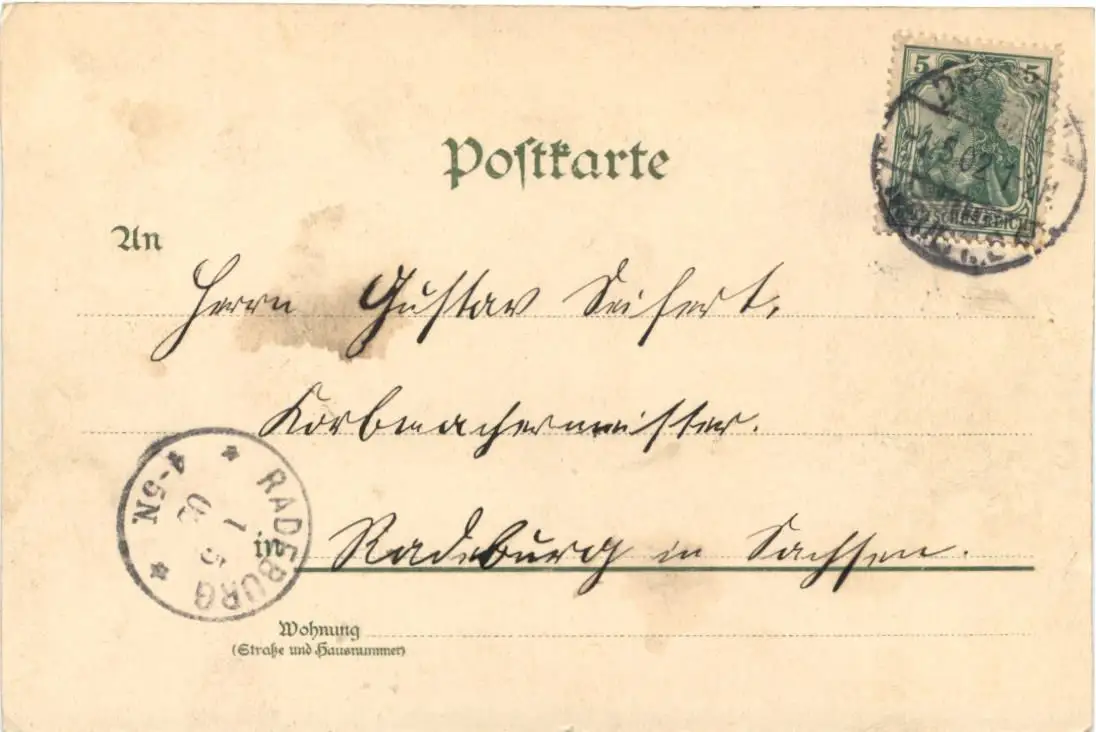 5 5
Postkarte
5.02
REICH
An
Herrn Gustav Seifert,
Korbmachermeister.
RADEBURG
4-5N.
1 5
02
in Radeburg in Sachsen.
Wohnung
(Straße und Hausnummer)